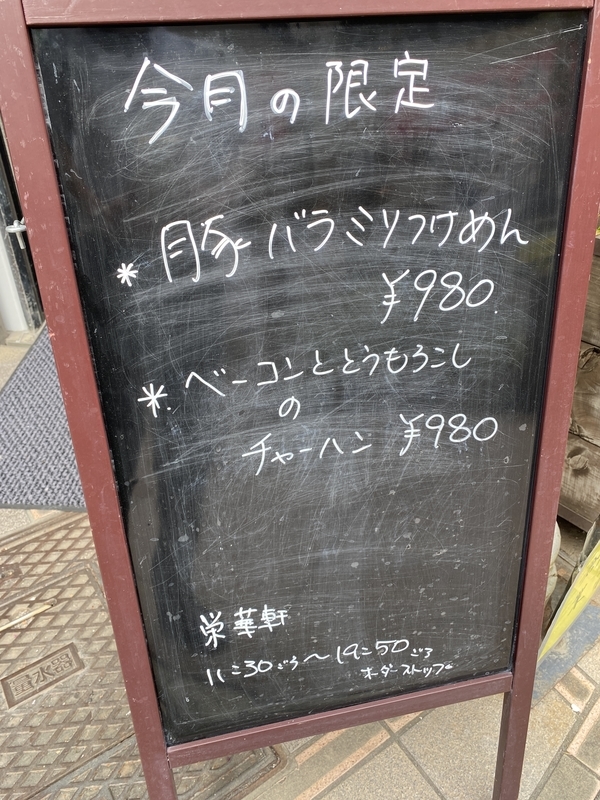 今月の限定
* 豚バラミソつけめん
¥980
* ベーコンととうもろこし
の
チャーハン ¥980
栄華軒
11:30ごろ〜19:50ごろ
オーダーストップ
量水器